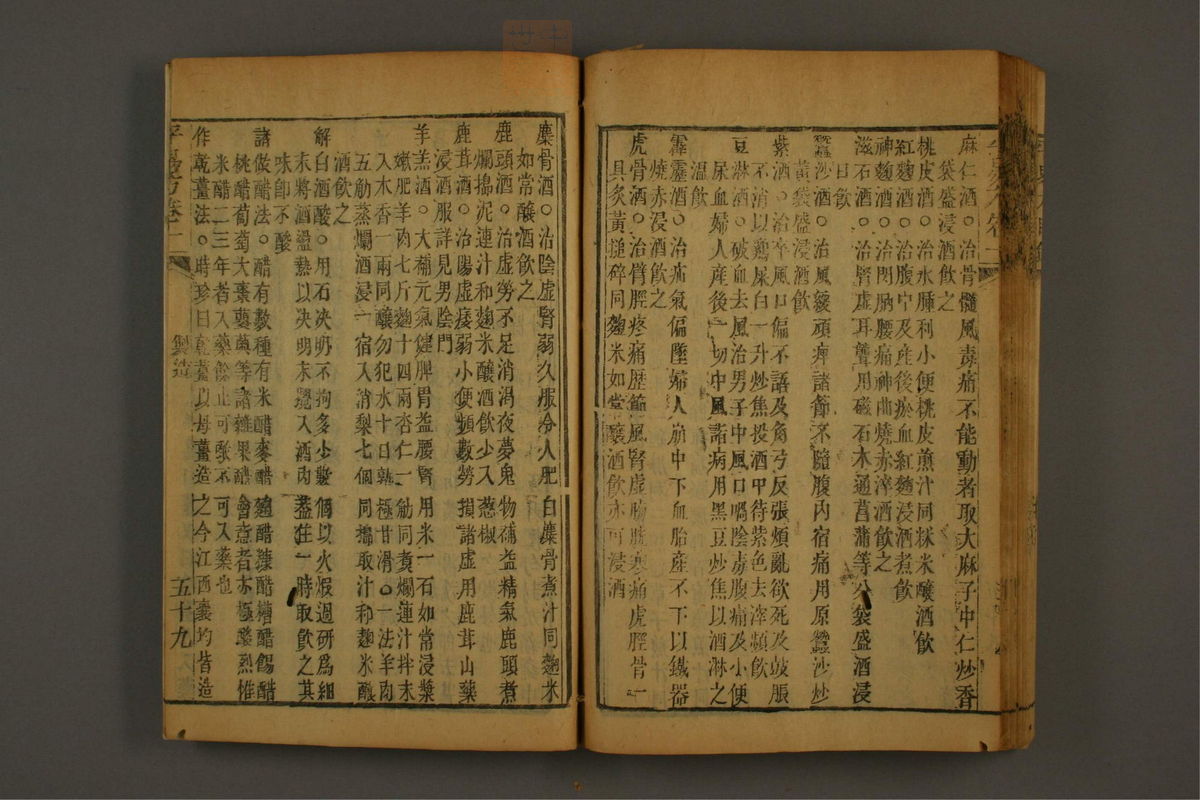 麻仁酒○治骨髓風毒痛不能動者取大麻子中仁炒香
袋盛浸酒飲之
桃皮酒○治水腫利小便桃皮煎汁同秫米釀酒飲
紅麴酒○治腹中及産後瘀血紅麴浸酒煮飲
神麴酒○治閃肭腰痛神曲燒赤淬酒飲之
滋石酒○治腎虛耳聾用磁石木通菖蒲等分袋盛酒浸
日飲
蠶沙酒○治風緩頑痺諸節不隨腹內宿痛用原蠶沙炒
黃袋盛浸酒飲
紫酒○治卒風口偏不語及角弓反張煩亂欲死及鼓脹
不消以鷄屎白一升炒焦投酒中待紫色去滓頻飲
豆淋酒○破血去風治男子中風口喎陰毒腹痛及小便
尿血婦人産後一切中風諸病用黑豆炒焦以酒淋之
溫飲
霹靂酒○治疝氣偏墜婦人崩中下血胎産不下以鐵器
燒赤浸酒飲之
虎骨酒○治臂脛疼痛歷節風腎虛膀胱寒痛虎脛骨一
具炙黃搥碎同麴米如常釀酒飲亦可浸酒
麋骨酒○治陰虛腎弱久服令人肥白麋骨煮汁同麴米
如常釀酒飲之
鹿頭酒○治虛勞不足消渴夜夢鬼物補益精氣鹿頭煮
爛搗泥連汁和麴米釀酒飲少入葱椒
鹿茸酒○治陽虛痿弱小便頻數勞損諸虛用鹿茸山藥
浸酒服詳見男陰門
羊羔酒○大補元氣健脾胃益腰腎用米一石如常浸漿
嫩肥羊肉七斤麴十四兩杏仁一觔同煮爛連汁拌末
入木香一兩同釀勿犯水十日熟極甘滑○一法羊肉
五觔蒸爛酒浸一宿入消梨七個同搗取汁和麴米釀
酒飲之
解白酒酸○用石决明不拘多少數個以火煅過研爲細
末將酒盪熱以决明末攪入酒內葢住一時取飲之其
味卽不酸
諸做醋法○醋有數種有米醋麥醋麯醋糠醋糟醋餳醋
桃醋葡萄大棗蘡薁等諸雜果醋會意者亦極酸烈惟
米醋二三年者入藥餘止可啖不可入藥也
作乾薑法○時珍曰乾薑以母薑造之今江西襄均皆造
製造
五十九